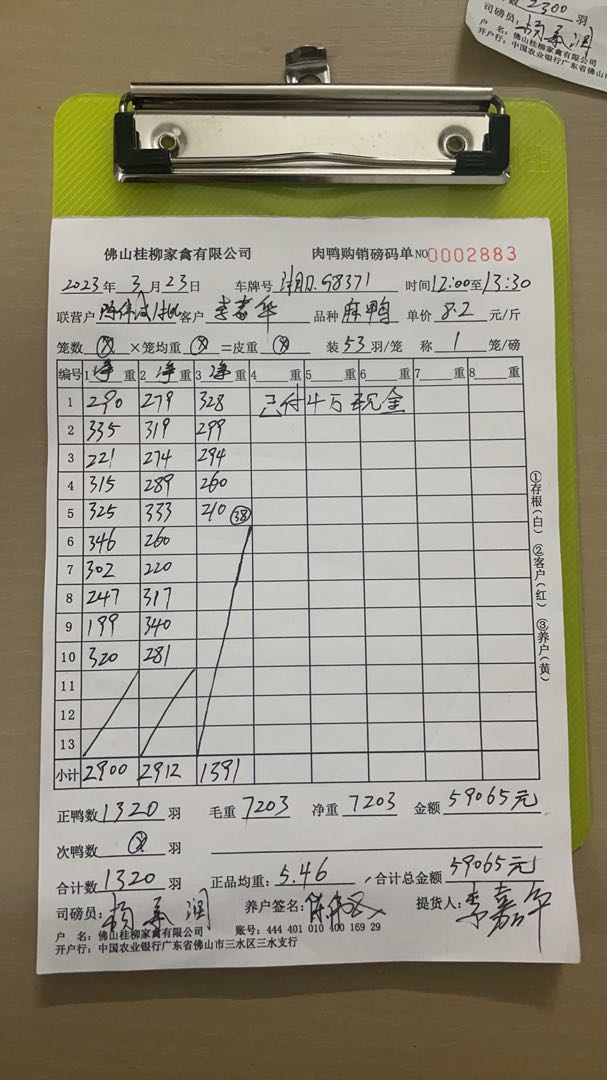 数 2300 羽
司磅员：
户 名：佛山桂柳家禽有限公司
开户行：中国农业银行广东省佛山
佛山桂柳家禽有限公司 肉鸭购销磅码单 NO 0002883
2023年 3 月 23 日 车牌号 湘D.G8371 时间 12:00至13:30
联营户 客户 李嘉华 品种 麻鸭 单价 8.2 元/斤
笼数 ×笼均重 =皮重 装 53 羽/笼 称 1 笼/磅
编号 1 净 重 2 净 重 3 净 重 4 重 5 重 6 重 7 重 8 重
1 290 279 328 已付4万现金
2 335 319 299
3 221 274 294
4 315 289 260
5 325 333 210 38
6 346 260
7 302 220
8 247 317
9 199 340
10 320 281
11
12
13
小计 2900 2912 1391
①存根(白) ②客户(红) ③养户(黄)
正鸭数 1320 羽 毛重 7203 净重 7203 金额 59065元
次鸭数 羽
合计数 1320 羽 正品均重： 5.46 ，合计总金额 59065元
司磅员： 养户签名： 提货人：李嘉华
户 名：佛山桂柳家禽有限公司 账号：444 401 010 400 169 29
开户行：中国农业银行广东省佛山市三水区三水支行